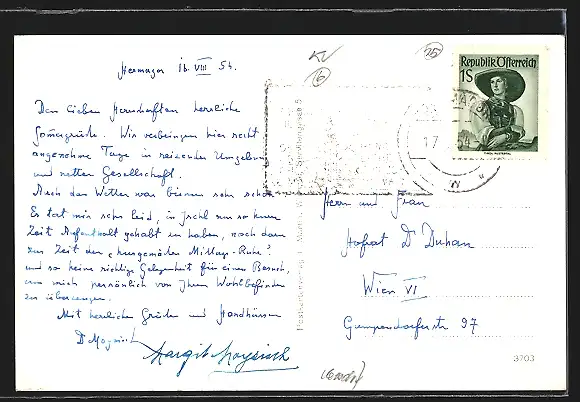 Hermagor 16. VIII 54.
Den lieben Herrschaften herzliche
Sommergrüße. Wir verbringen hier recht
angenehme Tage in reizender Umgebung
und netter Gesellschaft.
Auch das Wetter war bisher sehr schön.
Es tat mir sehr leid, in Ischl nur so kurze
Zeit Aufenthalt gehabt zu haben, noch dazu
zur Zeit der "hausgemäßen Mittag-Ruhe"
und so keine richtige Gelegenheit für einen Besuch,
um mich persönlich von Ihrem Wohlbefinden
zu überzeugen.
Mit herzlichen Grüßen und Handküssen
Margit
Republik Österreich
1S
17
54
Herrn und Frau
Hofrat Dr Duhan
Wien VI
Gumpendorferstr 97
3703